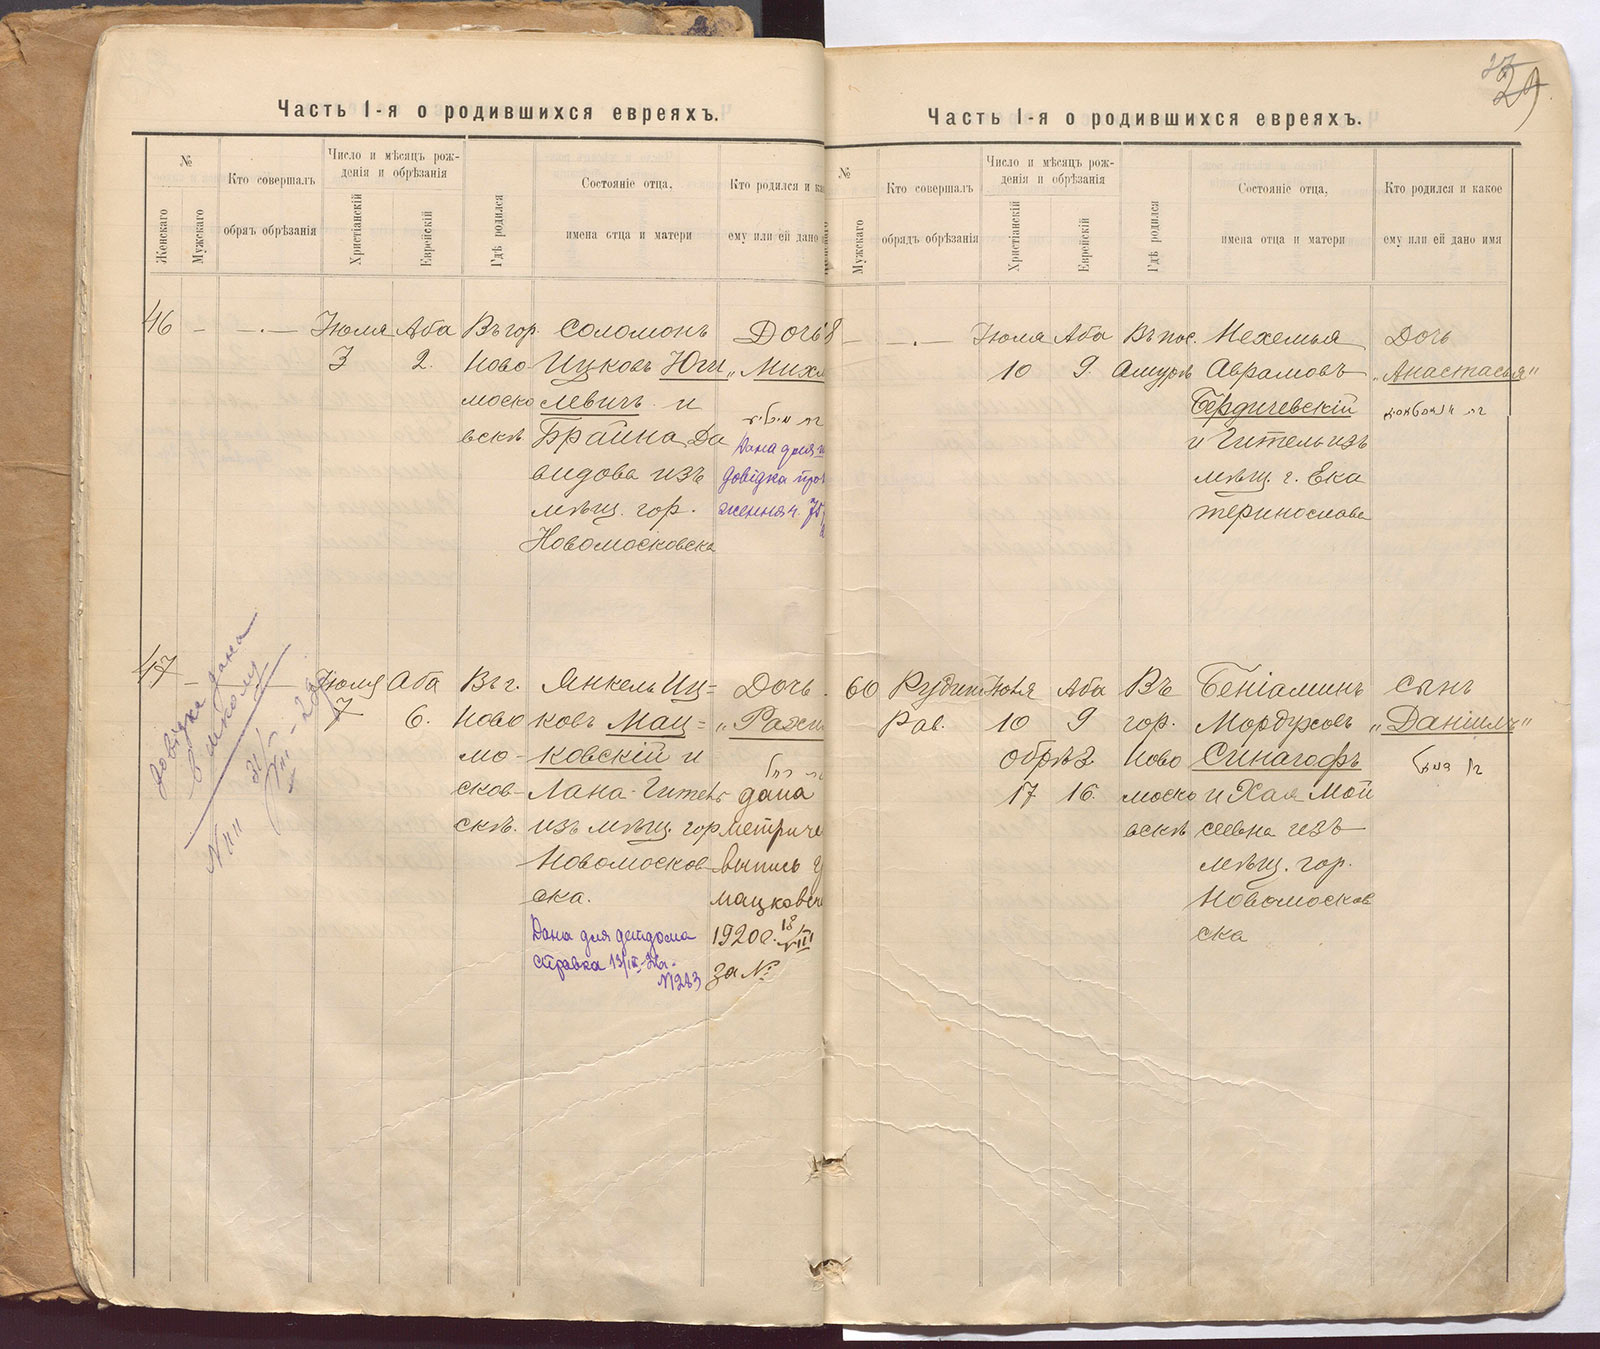 Часть I-я о родившихся евреяхъ.
№
Женскаго
Мужскаго
Кто совершалъ
обрядъ обрѣзанія
Число и мѣсяцъ рож-
денія и обрѣзанія
Христіанскій
Еврейскій
Гдѣ родился
Состояніе отца,
имена отца и матери
Кто родился и как
ему или ей дано
46
Іюля
3
Аба
2.
Въ гор.
Ново
моско
вскѣ
Соломонъ
Ицковъ Юги
левичъ и
Брайна Да
видова изъ
мѣщ. гор.
Новомосковска
Дочь
„Миха
Дана
довідка про
47
Іюля
7
Аба
6.
Въ г.
Ново
мо-
сков-
скѣ.
Янкель Иц=
ковъ Мац=
ковскій и
Лана-Гитель
изъ мѣщ. гор
Новомосков
ска.
Дана для детдома
справка
N283
Дочь
„Рахи
дана
метриче
выпись
мацковск
1920 г. 18/VIII
за №
довідка дана
N 1111
24
Часть I-я о родившихся евреяхъ.
№
Мужскаго
Кто совершалъ
обрядъ обрѣзанія
Число и мѣсяцъ рож-
денія и обрѣзанія
Христіанскій
Еврейскій
Гдѣ родился
Состояніе отца,
имена отца и матери
Кто родился и какое
ему или ей дано имя
8
Іюля
10
Аба
9.
Въ пос.
Амурѣ
Нехемья
Аврамовъ
Бердичевскій
и Гитель изъ
мѣщ. г. Ека
теринослава
Дочь
„Анастасья“
60
Рав.
Іюля
10
обрѣз
17
Аба
9
16.
Въ
гор.
Ново
моско
вскѣ
Беніаминъ
Мордуховъ
Синагофъ
и Хая Мой
сеевна изъ
мѣщ. гор.
Новомосков
ска
сынъ
„Даніилъ“